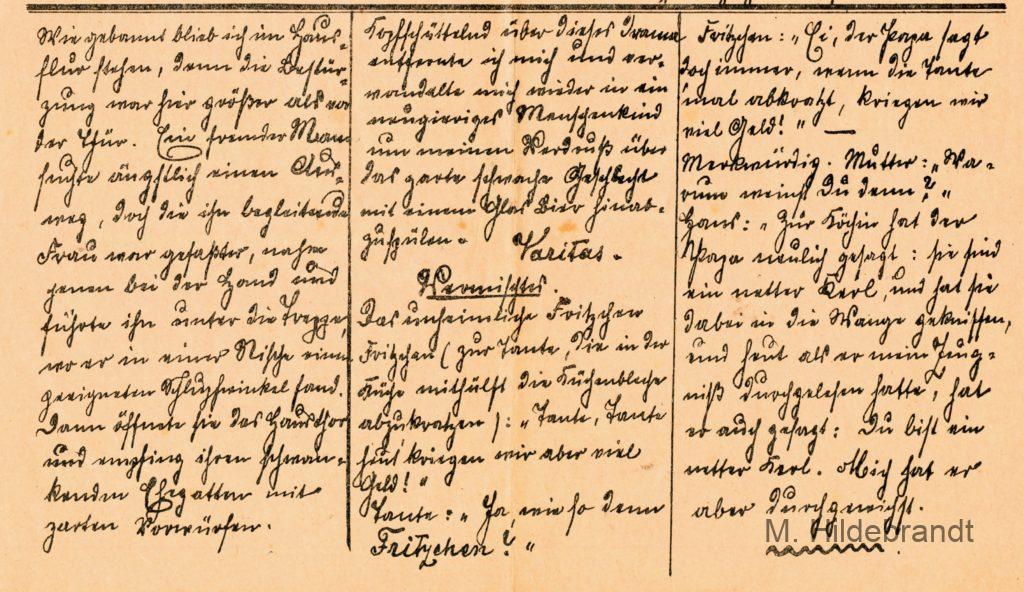 Wie gebannt blieb ich im Haus-
flur stehen, denn die Bestür-
zung war hier größer als vor
der Thür. Ein fremder Mann
suchte ängstlich einen Aus-
weg, doch die ihn begleitende
Frau war gefaßter, nahm
jenen bei der Hand und
führte ihn unter die Treppe,
wo er in einer Nische einen
geeigneten Schlupfwinkel fand.
Dann öffnete sie das Hausthor
und empfing ihren schwan-
kenden Ehegatten mit
zarten Vorwürfen.
Kopfschüttelnd über dieses Drama
entfernte ich mich und ver-
wandelte mich wieder in ein
neugieriges Menschenkind
um meinen Verdruß über
das zarte schwache Geschlecht
mit einem Glas Bier hinab-
zuspülen. Varitas.
Vermischtes.
Das unheimliche Fritzchen
Fritzchen (zur Tante, die in der
Küche mithülft die Küchenbleche
abzukratzen): „Tante, Tante
heut kriegen wir aber viel
Geld!"
Tante: „Ja, wie so denn
Fritzchen?"
Fritzchen: „Ei, der Papa sagt
doch immer, wenn die Tante
'mal abkratzt, kriegen wir
viel Geld!" —
Merkwürdig. Mutter: „Wa-
rum weinst Du denn?"
Hans: „Zur Köchin hat der
Papa neulich gesagt: sie sind
ein netter Kerl, und hat sie
dabei in die Wange gekniffen,
und heut als er mein Zeug-
niß durchgelesen hatte, hat
er auch gesagt: Du bist ein
netter Kerl. Mich hat er
aber durchgewichst.
M. Hildebrandt